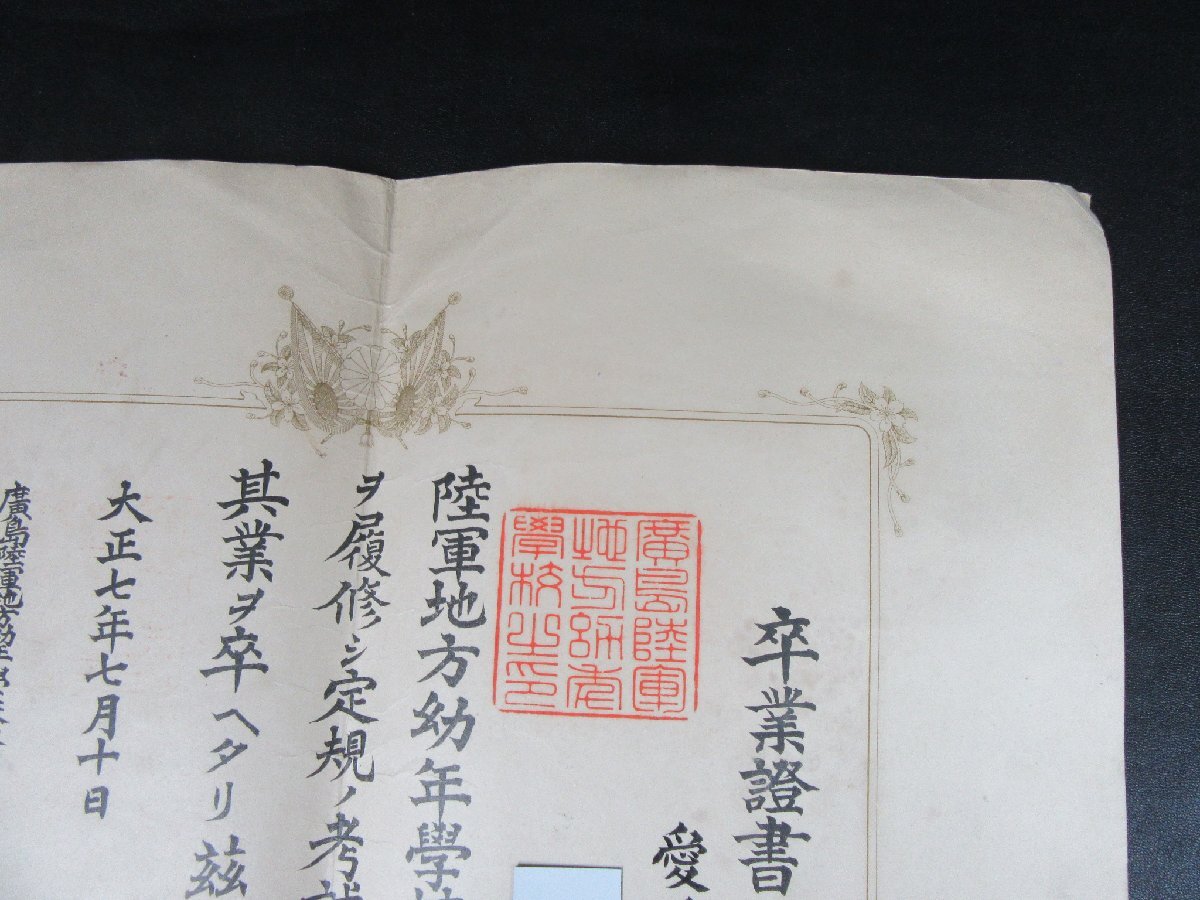 卒業證書
愛
廣島陸軍
地方幼年
學校之印
陸軍地方幼年學校
ヲ履修シ定規ノ考
其業ヲ卒ヘタリ茲
大正七年七月十日
廣島陸軍地方幼年